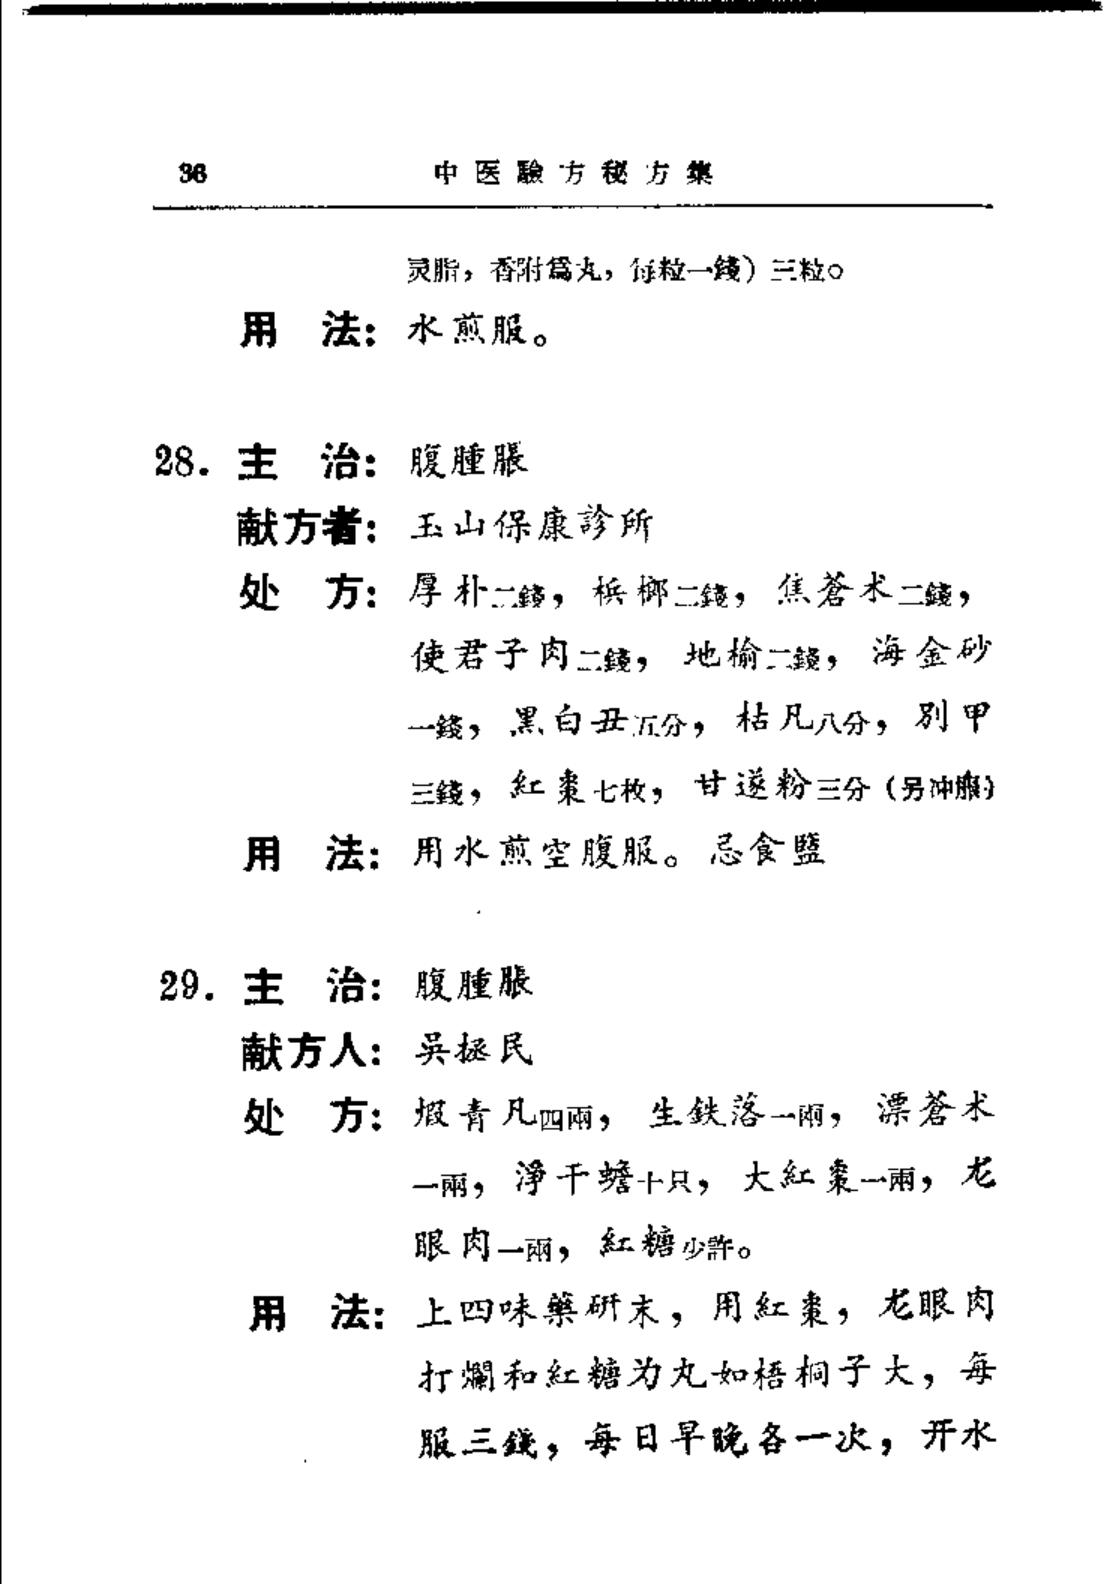 36 中医驗方秘方集
灵脂，香附爲丸，每粒一錢）三粒。
用 法：水煎服。
28. 主 治：腹腫脹
献方者：玉山保康診所
处 方：厚朴二錢，梹榔二錢，焦蒼术二錢，
使君子肉二錢，地榆二錢，海金砂
一錢，黑白丑五分，枯凡八分，別甲
三錢，紅棗七枚，甘遂粉三分（另冲服）
用 法：用水煎空腹服。忌食鹽
29. 主 治：腹腫脹
献方人：吳拯民
处 方：煅青凡四兩，生鉄落一兩，漂蒼术
一兩，淨干蟾十只，大紅棗一兩，龙
眼肉一兩，紅糖少許。
用 法：上四味藥研末，用紅棗，龙眼肉
打爛和紅糖为丸如梧桐子大，每
服三錢，每日早晚各一次，开水